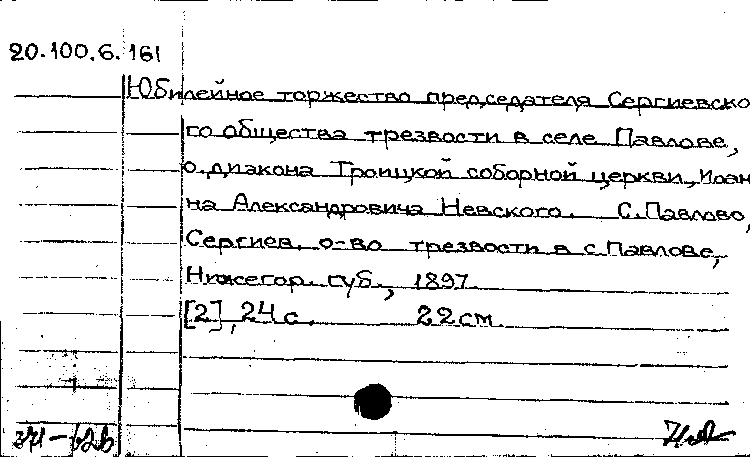 20.100.6.161
Юбилейное торжество председателя Сергиевско
го общества трезвости в селе Павлове,
о.диакона Троицкой соборной церкви, Иоан
на Александровича Невского. С.Павлово,
Сергиев. о-во трезвости в с.Павлове,
Нижегор. губ., 1897.
[2], 24 с. 22 см.